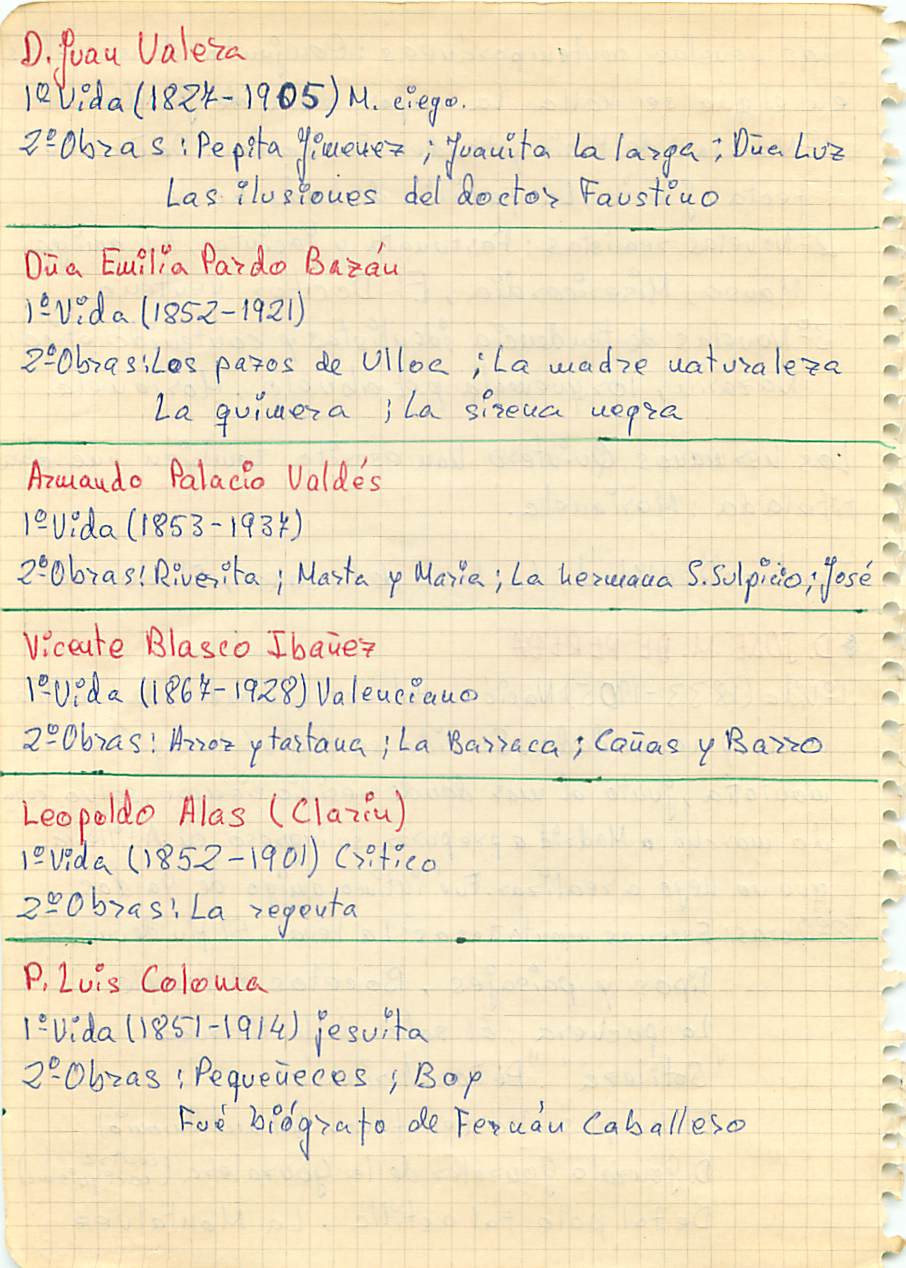 D. Juan Valera
1º Vida (1827-1905) M. ciego.
2º Obras: Pepita Jimenez; Juanita la larga; Dña Luz
Las ilusiones del doctor Faustino
Dña Emilia Pardo Bazán
1º Vida (1852-1921)
2º Obras: Los pazos de Ulloa; La madre naturaleza
La quimera; La sirena negra
Armando Palacio Valdés
1º Vida (1853-1937)
2º Obras: Riverita; Marta y Maria; La hermana S. Sulpicio; José
Vicente Blasco Ibañez
1º Vida (1867-1928) Valenciano
2º Obras: Arroz y tartana; La Barraca; Cañas y Barro
Leopoldo Alas (Clarin)
1º Vida (1852-1901) Critico
2º Obras: La regenta
P. Luis Coloma
1º Vida (1851-1914) jesuita
2º Obras: Pequeñeces; Boy
Fué biógrafo de Fernán Caballero